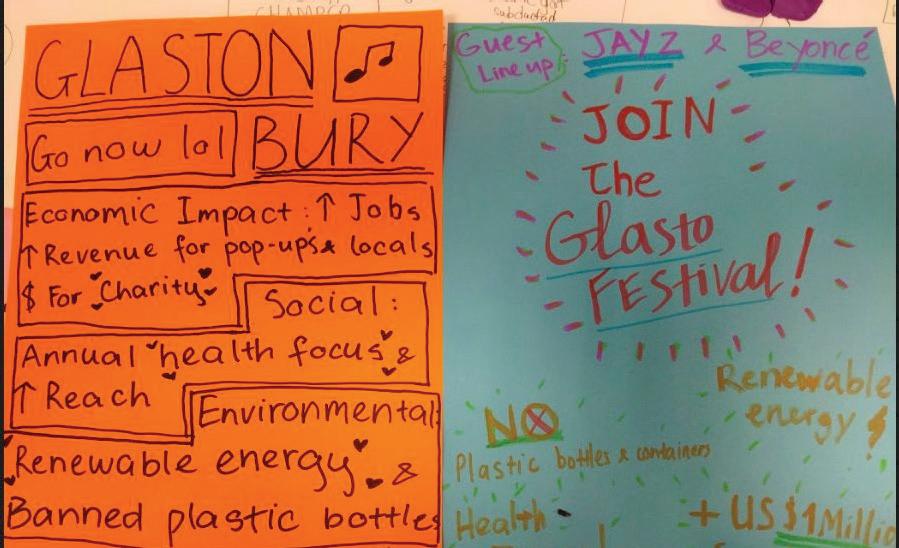 CHAMPCO
subducted
GLASTON
Go now lol
BURY
Economic Impact: ↑ Jobs
↑ Revenue for pop-up's & locals
$ For Charity
Social:
Annual health focus &
↑ Reach
Environmental:
Renewable energy &
Banned plastic bottles
Guest
Line up:
JAYZ & Beyoncé
JOIN
The
Glasto
FEStival!
Renewable
energy
NO
Plastic bottles & containers
Health
+ US $1Millio